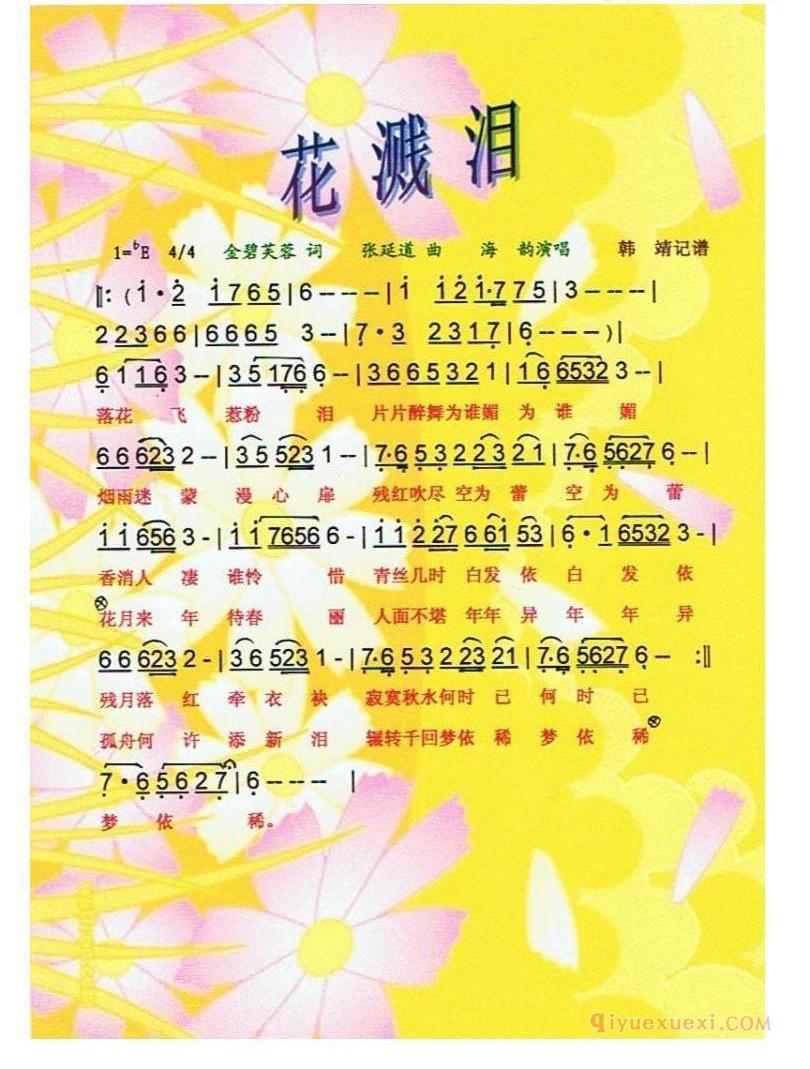 花溅泪
1=♭E 4/4 金碧芙蓉 词 张延道 曲 海 韵演唱 韩 靖记谱
‖:(i·2 i765|6---|i i2i·775|3---|
22366|6665 3--|7·3 2317|6---)|
6116 3--|35176 6--|36665321|166532 3--|
落花 飞 惹粉 泪 片片醉舞为谁媚 为 谁 媚
66623 2--|35523 1--|7·653 22321|7·65627 6--|
烟雨迷 蒙 漫 心 扉 残红吹尽 空为 蕾 空 为 蕾
ii656 3-|ii7656 6-|ii227 66i53|6·16532 3-|
香消人 凄 谁怜 惜 青丝几时 白发 依 白 发 依
花月来 年 待春 丽 人面不堪 年年 异 年 年 异
66623 2-|36523 1-|7·653 22321|7·65627 6-- :‖
残月落 红 牵 衣 袂 寂寞秋水何时 已 何 时 已
孤舟何 许 添 新 泪 辗转千回梦依 稀 梦 依 稀
7·65627|6--- |
梦 依 稀。
qiyuexuexi.COM